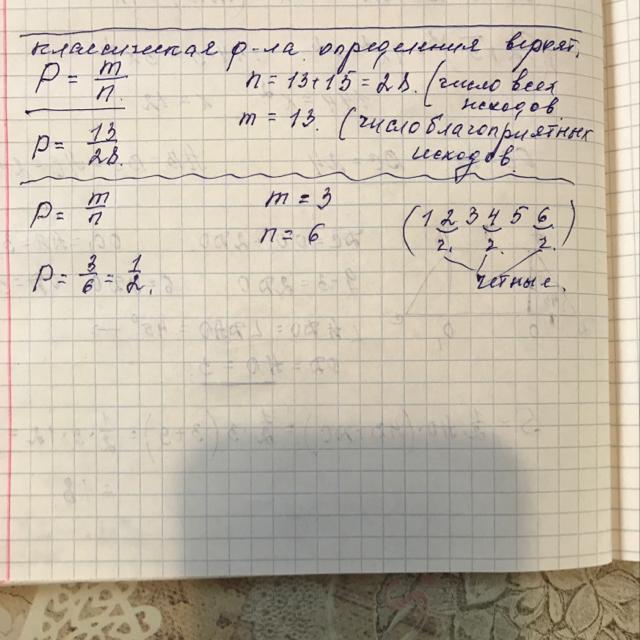 классическая ф-ла определения вероят.
P = m/n. n = 13+15 = 28. (число всех исходов
m = 13. (число благоприятных исходов.
P = 13/28.
P = m/n m = 3 (1 2 3 4 5 6)
n = 6 2. 2. 2.
P = 3/6 = 1/2. четные.